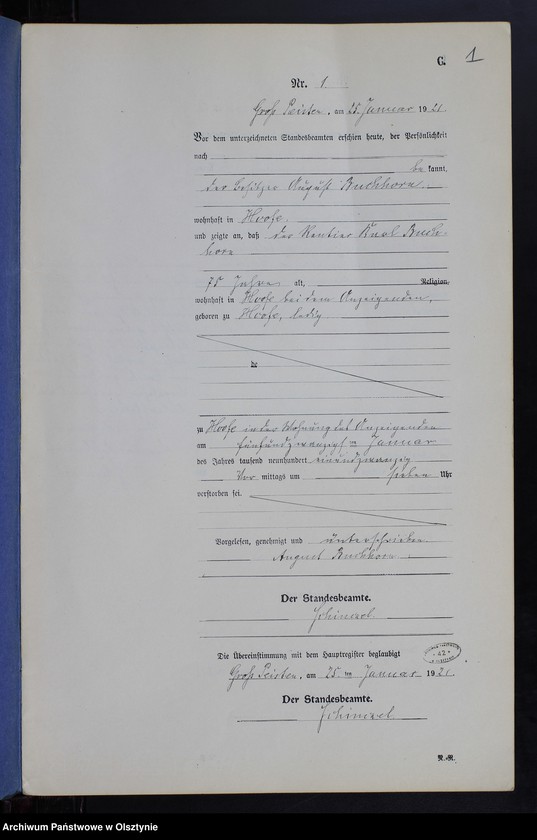 C. 1
Nr. 1.
Groß Peisten, am 25. Januar 1921
Vor dem unterzeichneten Standesbeamten erschien heute, der Persönlichkeit
nach
be kannt,
der Besitzer August Buchhorn
wohnhaft in Hoofe.
und zeigte an, daß der Rentier Karl Buch-
horn
75 Jahre alt, Religion,
wohnhaft in Hoofe bei dem Anzeigenden,
geboren zu Hoofe, ledig
de
zu Hoofe in der Wohnung des Anzeigenden
am fünfundzwanzigsten Januar
des Jahres tausend neunhundert einundzwanzig
Vor mittags um sieben Uhr
verstorben sei.
Vorgelesen, genehmigt und unterschrieben
August Buchhorn
Der Standesbeamte.
Die Übereinstimmung mit dem Hauptregister beglaubigt
Groß Peisten, am 25 ten Januar 1921
Der Standesbeamte.
Archiwum Państwowe w Olsztynie